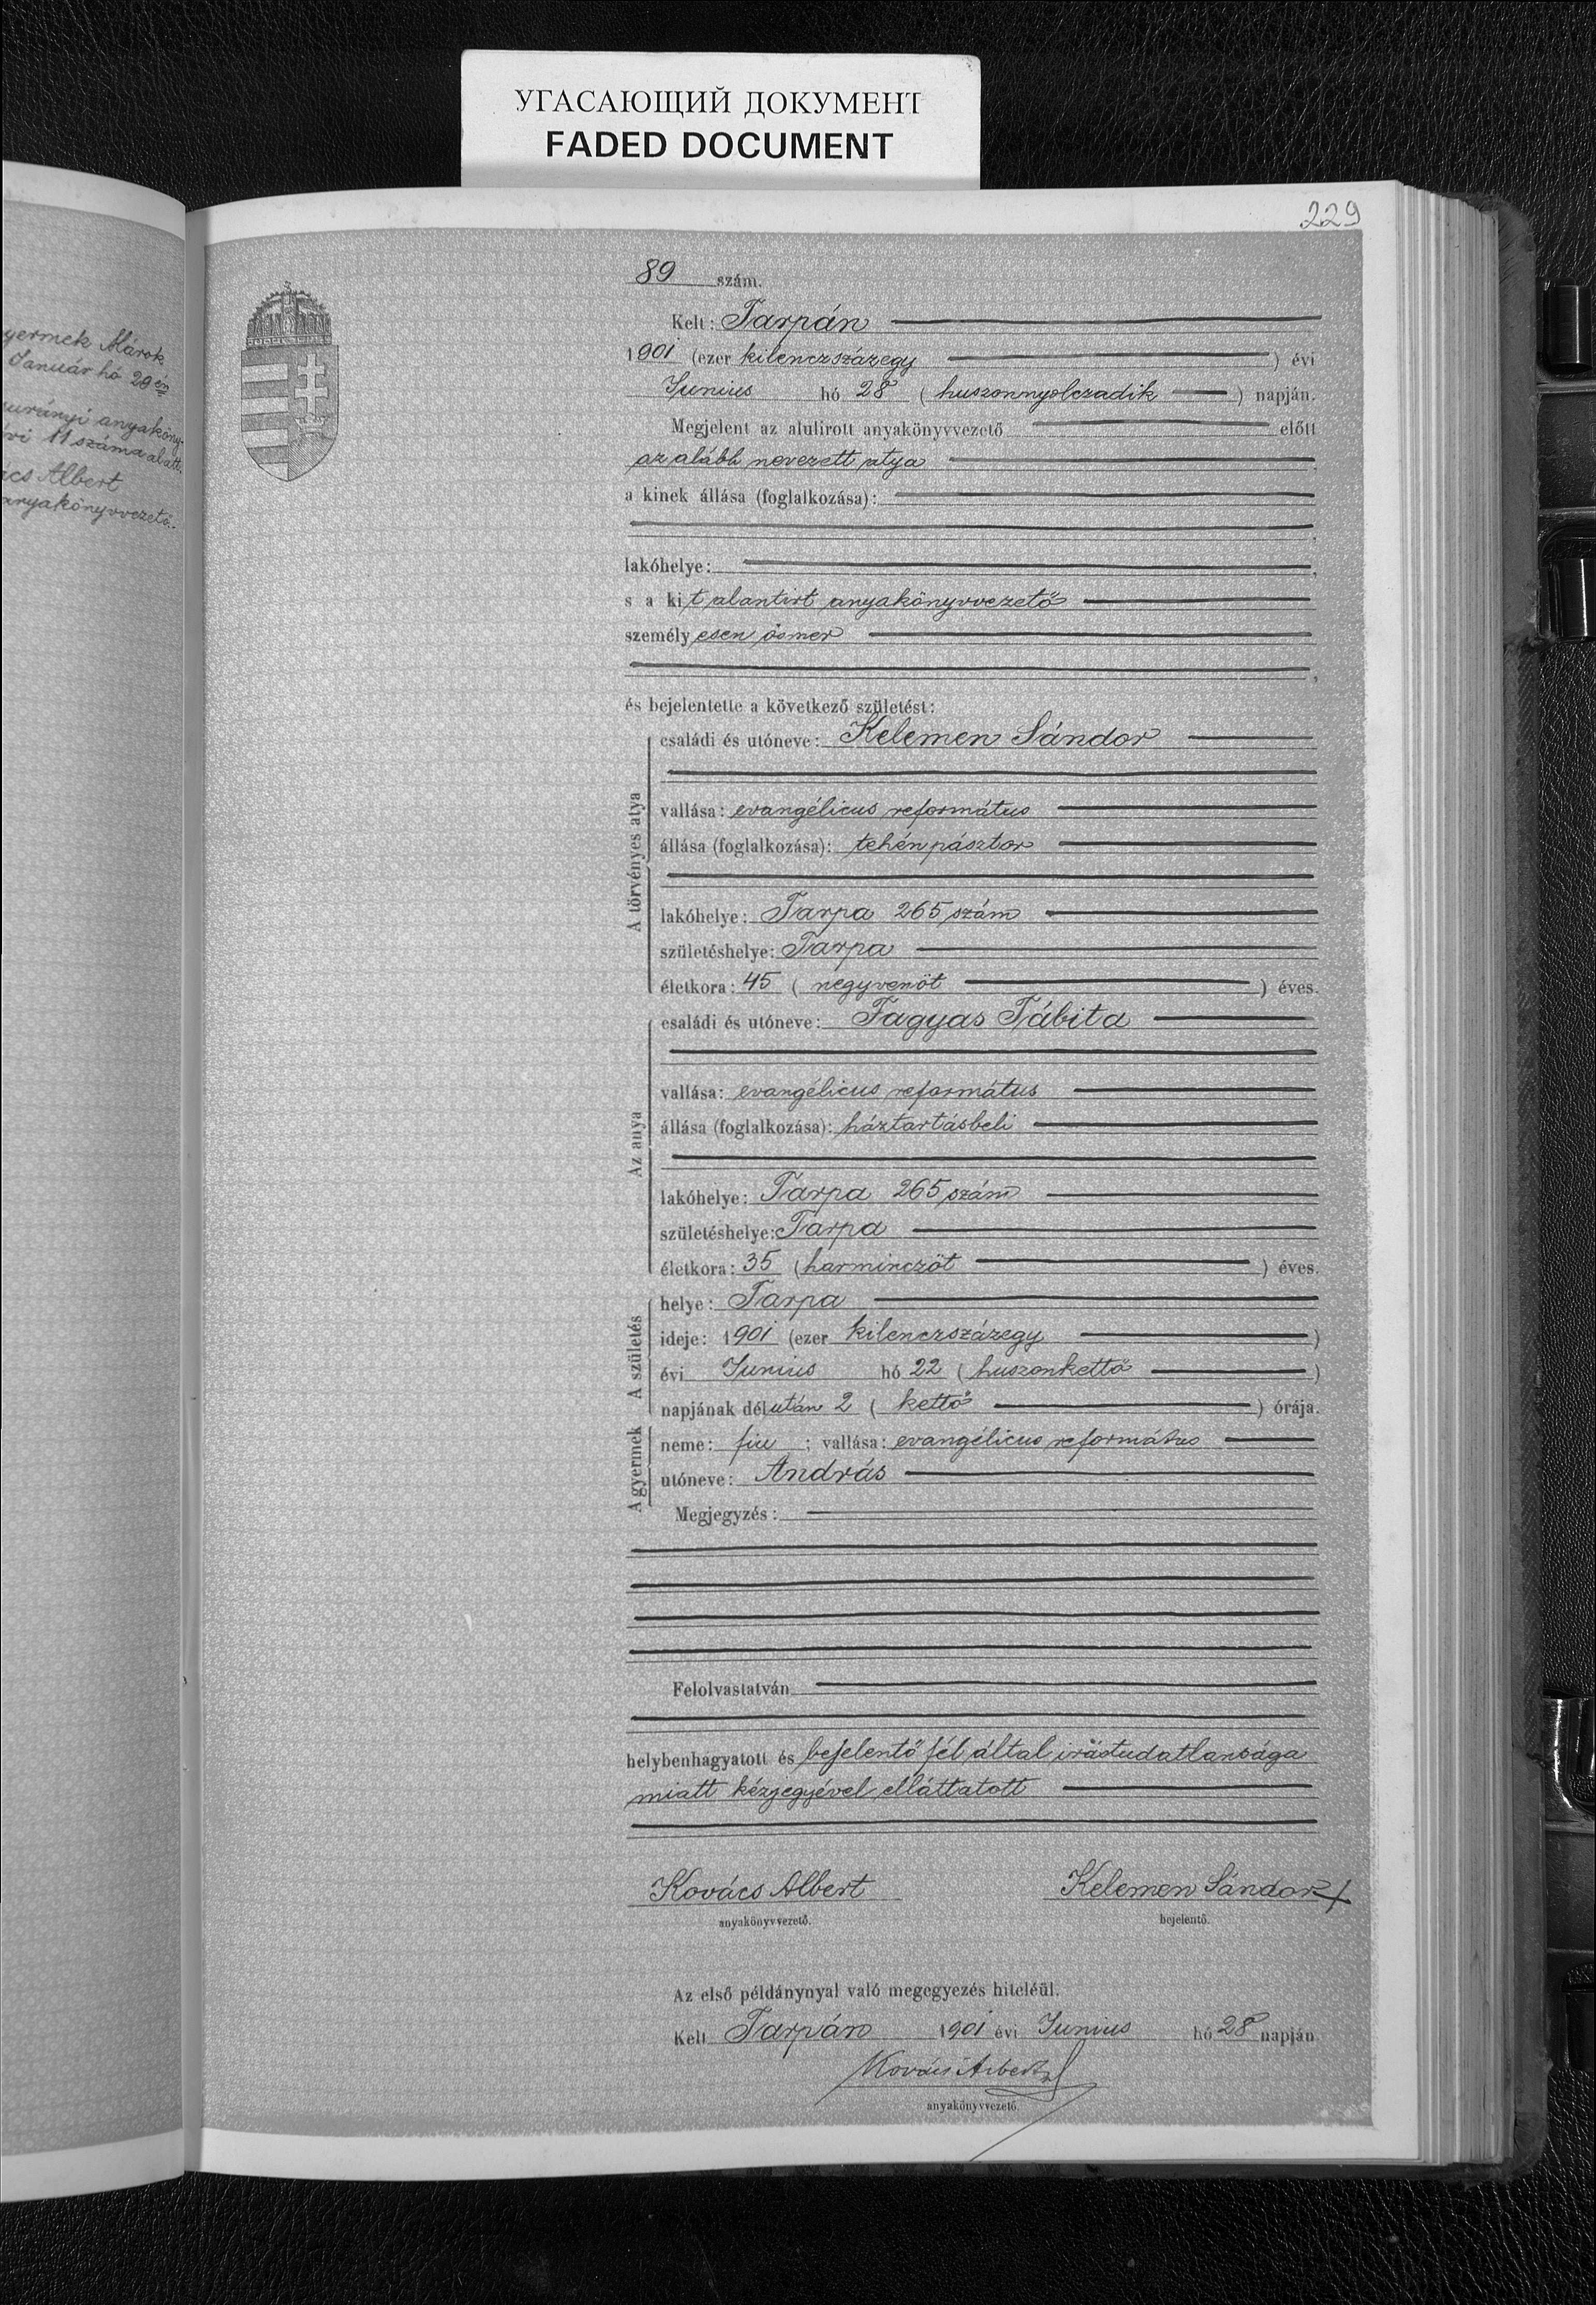 УГАСАЮЩИЙ ДОКУМЕНТ
FADED DOCUMENT
229
yermek Márok
Január hó 29 én
anyaköny-
vi 11 száma alatt.
ács Albert
anyakönyvvezető.
89 szám.
Kelt: Tarpán
1901 (ezer kilenczszázegy ) évi
Junius hó 28 (huszonnyolczadik ) napján.
Megjelent az alulirott anyakönyvvezető előtt
az alább nevezett atya
a kinek állása (foglalkozása):
lakóhelye:
s a kit alantirt anyakönyvvezető
személyesen ösmer
és bejelentette a következő születést:
A törvényes atya
családi és utóneve: Kelemen Sándor
vallása: evangélicus református
állása (foglalkozása): tehénpásztor
lakóhelye: Tarpa 265 szám
születéshelye: Tarpa
életkora: 45 (negyvenöt ) éves.
Az anya
családi és utóneve: Fagyas Tábita
vallása: evangélicus református
állása (foglalkozása): háztartásbeli
lakóhelye: Tarpa 265 szám
születéshelye: Tarpa
életkora: 35 (harminczöt ) éves.
A születés
helye: Tarpa
ideje: 1901 (ezer kilenczszázegy )
évi Junius hó 22 (huszonkettő )
napjának délután 2 (kettő ) órája.
A gyermek
neme: fiu ; vallása: evangélicus református
utóneve: András
Megjegyzés:
Felolvastatván
helybenhagyatott és bejelentő fél által irástudatlansága
miatt kézjegyével elláttatott
Kovács Albert Kelemen Sándor +
anyakönyvvezető. bejelentő.
Az első példánynyal való megegyezés hiteléül.
Kelt Tarpán 1901 évi Junius hó 28 napján
Kovács Albert
anyakönyvvezető.